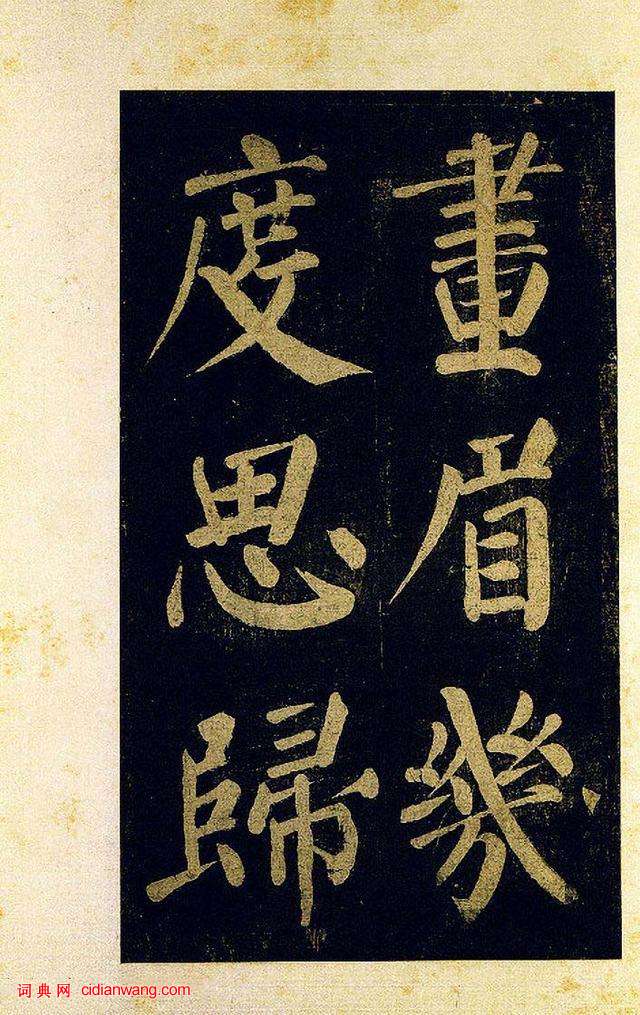 畫眉幾
度思歸
词典网 cidianwang.com